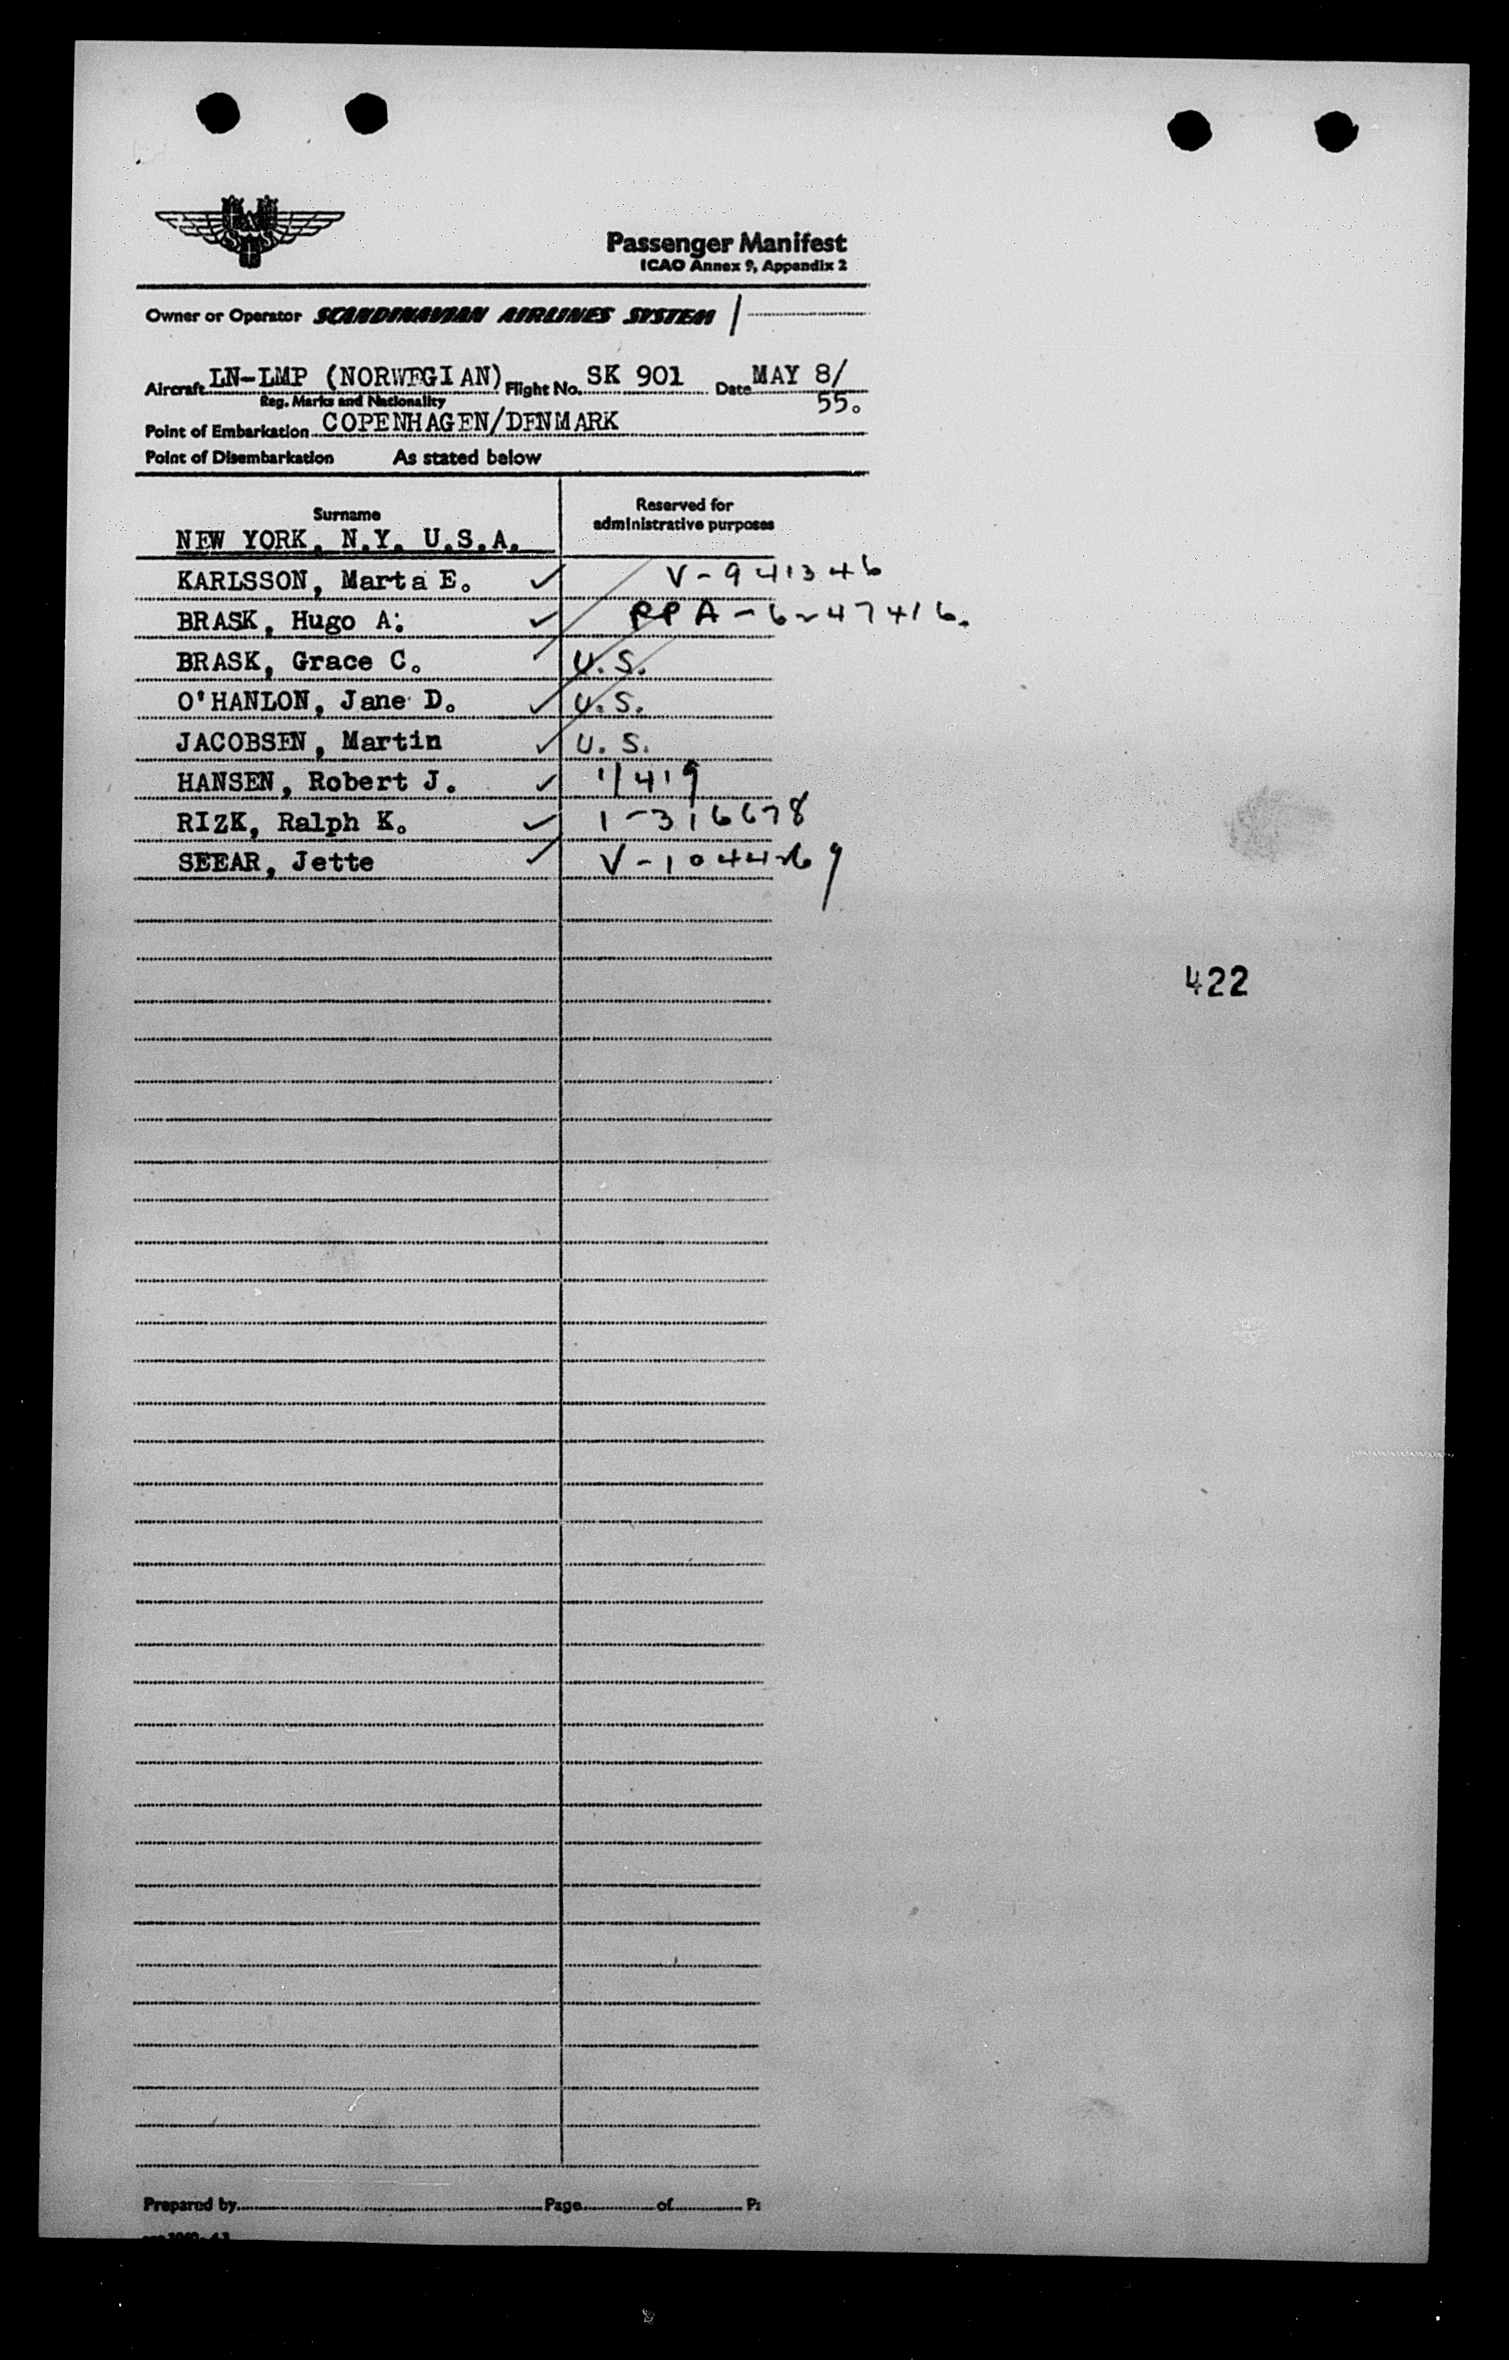 Passenger Manifest
ICAO Annex 9, Appendix 2
Owner or Operator SCANDINAVIAN AIRLINES SYSTEM
Aircraft LN-LMP (NORWEGIAN) Flight No. SK 901 Date MAY 8/
Reg. Marks and Nationality 55.
Point of Embarkation COPENHAGEN/DENMARK
Point of Disembarkation As stated below
Surname Reserved for administrative purposes
NEW YORK, N.Y. U.S.A.
KARLSSON, Marta E. ✓ V-941346
BRASK, Hugo A. ✓
BRASK, Grace C. ✓ U.S.
O'HANLON, Jane D. ✓ U.S.
JACOBSEN, Martin ✓ U.S.
HANSEN, Robert J. ✓
RIZK, Ralph K. ✓ 1-316678
SEEAR, Jette ✓
422
Prepared by Page of